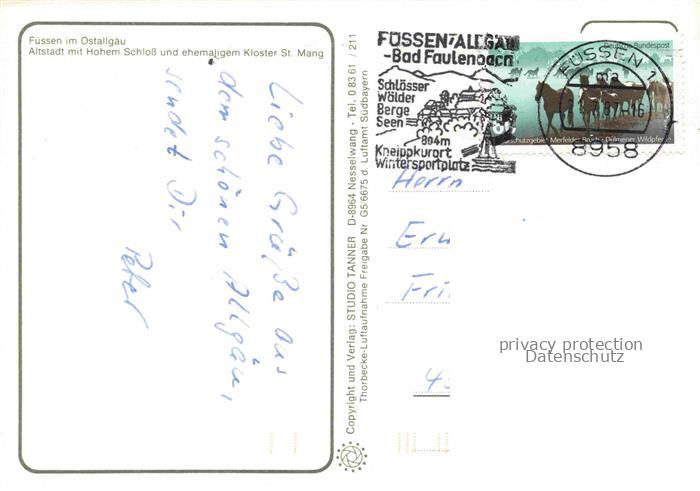 Füssen im Ostallgäu
Altstadt mit Hohem Schloß und ehemaligem Kloster St. Mang
Liebe Grüße aus
dem schönen Allgäu,
sendet Dir
Peter
Copyright und Verlag: STUDIO TANNER D-8964 Nesselwang · Tel. 0 83 61 / 211
Thorbecke-Luftaufnahme Freigabe Nr. G5/6675 d. Luftamt Südbayern
FÜSSEN/ALLGÄU
-Bad Faulenbach
Schlösser
Wälder
Berge
Seen
804m
Kneippkurort
Wintersportplatz
Deutsche Bundespost
Merfelder Bruch · Dülmener Wildpferde
FÜSSEN 1
8958
Herrn
privacy protection
Datenschutz